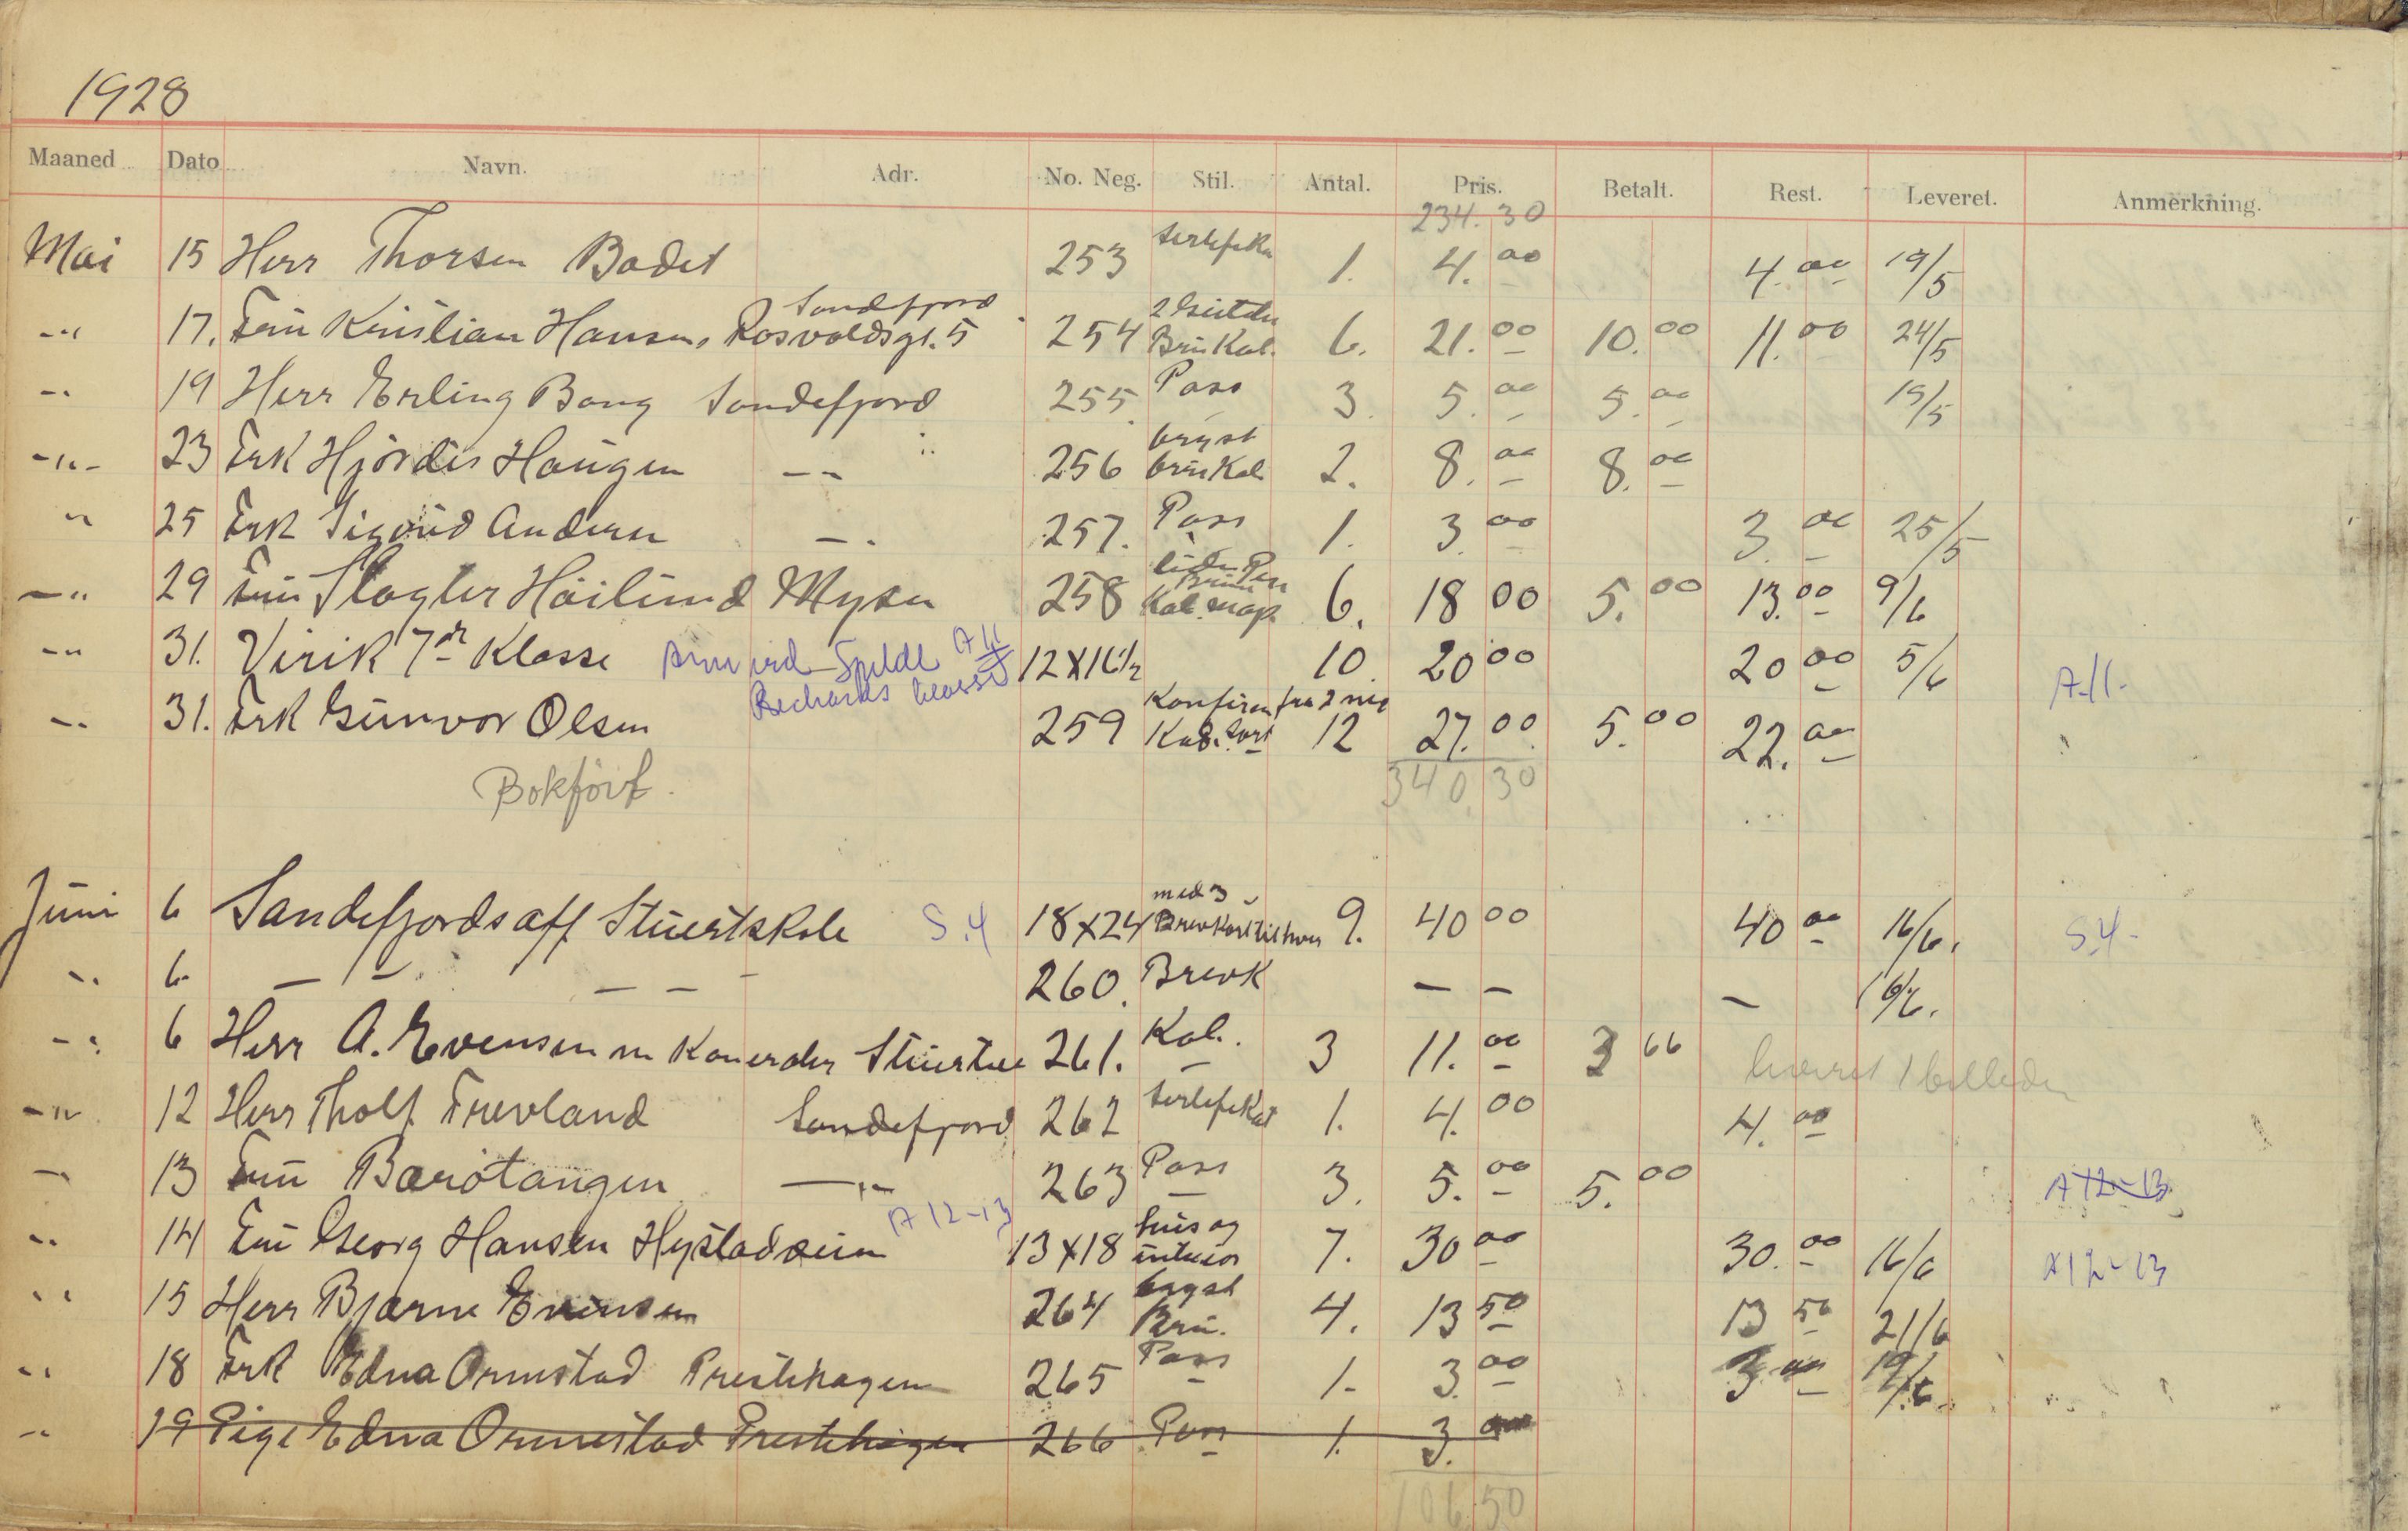 1928
Maaned Dato Navn. Adr. No. Neg. Stil. Antal. Pris. Betalt. Rest. Leveret. Anmerkning.
234.30
Mai 15 Herr Thorsen Badet 253 1. 4.00 4.00 19/5
Sandefjord
-"- 17. Fru Kristian Hansen, 254 Bru Kab. 6. 21.00 10.00 11.00 24/5
-"- 19 Herr Erling Bang Sandefjord 255 Pass 3. 5.00 5.00 19/5
bryst
-"- 23 Frk Hjørdis Haugen -"- 256 bru Kab 2. 8.00 8.00
-"- 25 Frk Sigrid Andersen -"- 257. Pass 1. 3.00 3.00 25/5
-"- 29 Fru Slagter Høilund Mysen 258 Kab. 6. 18 00 5.00 13.00 9/6
-"- 31. Virik 7de Klasse A11 12X16½ 10 20 00 20 00 5/6 A.11.
Konfirm fra 2 neg
-"- 31. Frk Gunvor Olsen 259 Kab. sort 12 27.00 5.00 22.00
Bokført. 340.30
med 3
Juni 6 Sandefjords aff Stuertskole S.4 18X24 Brevkort til hver 9. 40 00 40 00 16/6. S.4-
-"- 6. - - - - - 260. Brevk - - - 16/6.
-"- 6 Herr A. Evensen m Kone 261. Kab. 3 11.00 3 66 leveret 1 billede
-"- 12 Herr Tholf Frevland Sandefjord 262 serlefekat 1. 4.00 4.00
-"- 13 Fru Barøtangen -"- 263 Pass 3. 5.00 5.00 A 12-13
A 12-13
hus og
-"- 14 Fru Georg Hansen 13X18 interiør 7. 30 00 30.00 16/6 A12-13
bryst
-"- 15 Herr Bjarne Evensen 264 Bru. 4. 13 50 13 50 21/6
-"- 18 Frk Edna Ormestad Prestehagen 265 Pass 1. 3.00 3 00 19/6
-"- 19 Pige Edna Ormestad Prestehagen 266 Pass 1. 3.00
106.50